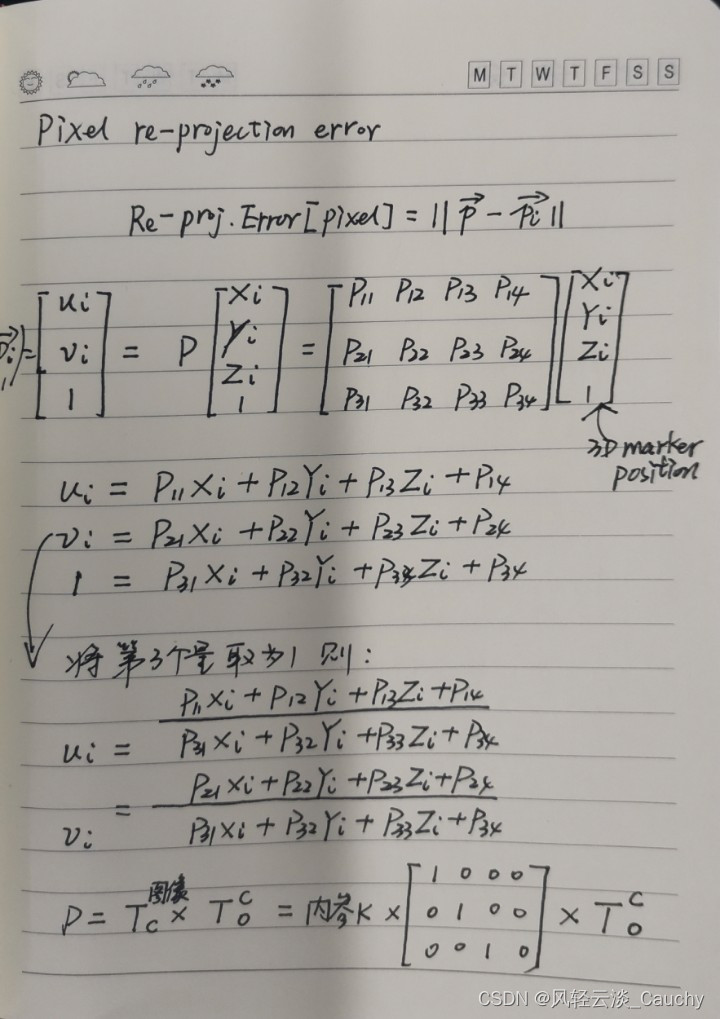 M T W T F S S
Pixel re-projection error
Re-proj.Error[pixel] = ||p⃗ - p⃗i||
p⃗i = [ui vi 1] = P [Xi Yi Zi 1] = [P11 P12 P13 P14
P21 P22 P23 P24
P31 P32 P33 P34] [Xi Yi Zi 1]
3D marker
position
ui = P11Xi + P12Yi + P13Zi + P14
vi = P21Xi + P22Yi + P23Zi + P24
1 = P31Xi + P32Yi + P33Zi + P34
将第3个量取为1 则:
ui = (P11Xi + P12Yi + P13Zi + P14) / (P31Xi + P32Yi + P33Zi + P34)
vi = (P21Xi + P22Yi + P23Zi + P24) / (P31Xi + P32Yi + P33Zi + P34)
P = T_C^图像 × T_O^C = 内参K × [1 0 0 0
0 1 0 0
0 0 1 0] × T_O^C
CSDN @风轻云淡_Cauchy